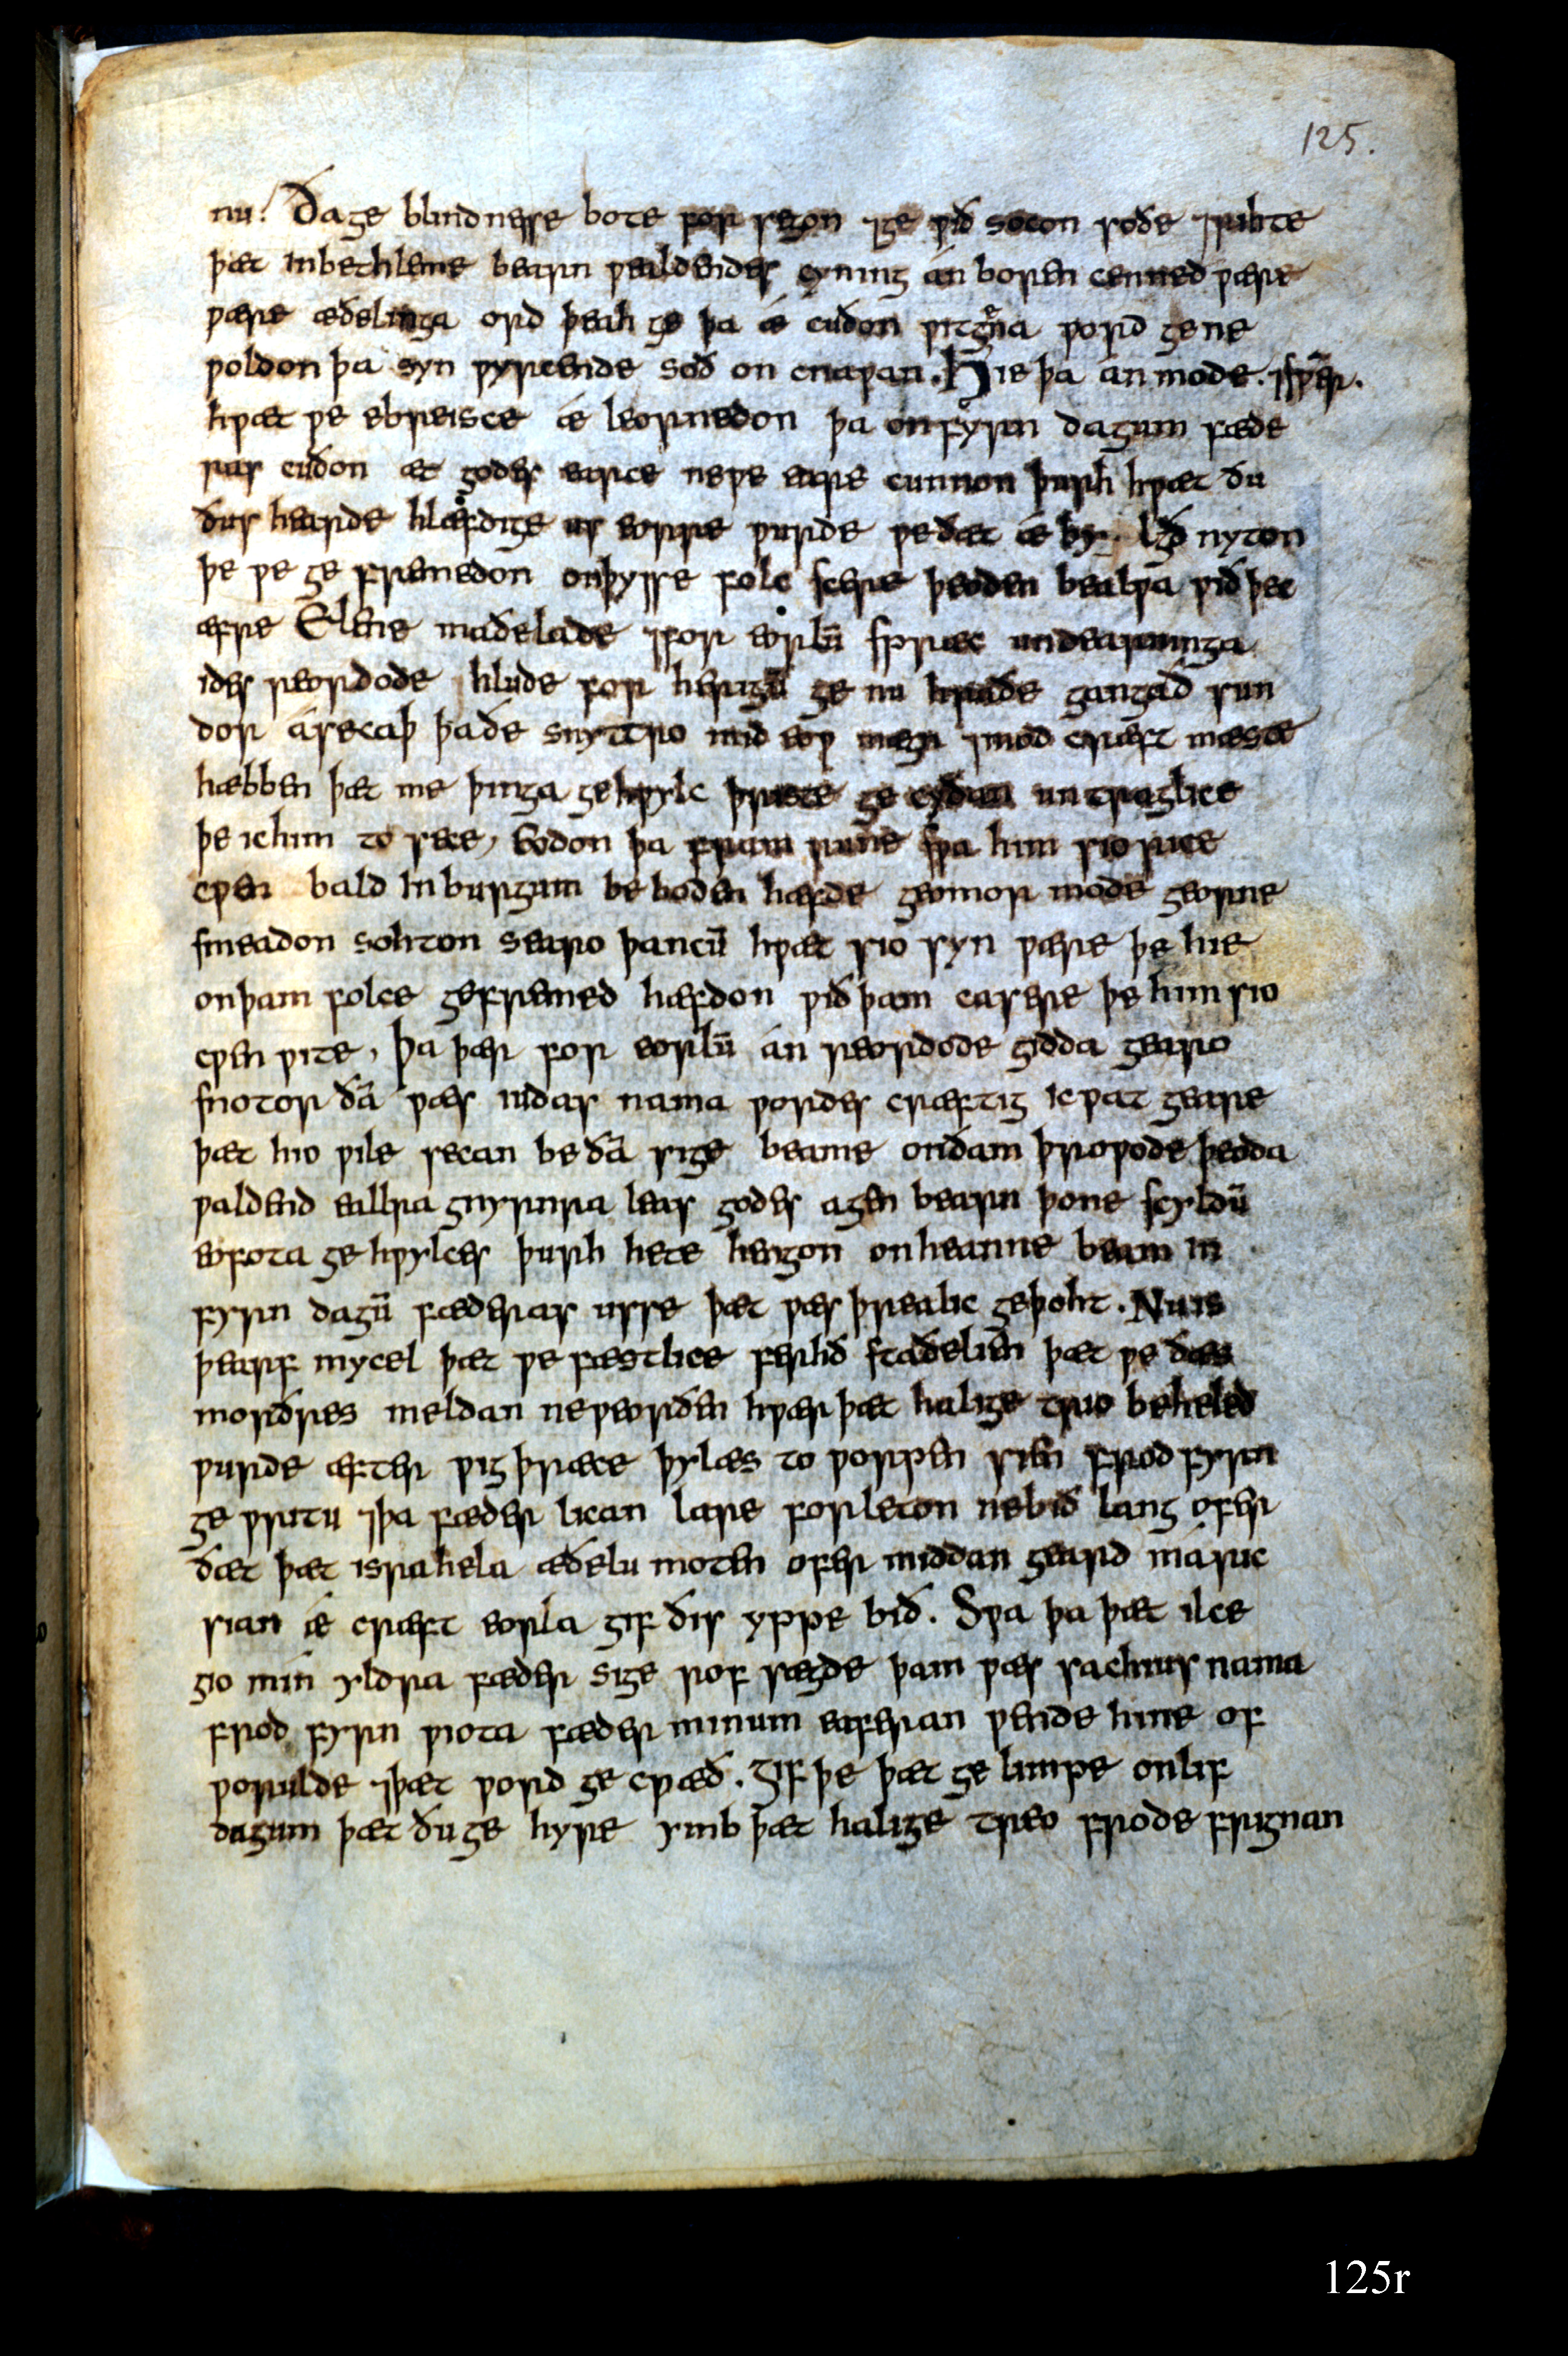 125.
nu. Ða ge blindnesse bote forsegon ⁊ge ƿið socon soðe ⁊rihte
þæt inbethleme bearn ƿealdendes cyning án boren cenned ƿære
æðelinga ord þeah ge þa ǽ cuðon ƿitgena ƿord gene
ƿoldon þa syn ƿyrcende soð on cnaƿan. Hie þa ánmode. ⁊sƿeƿ.
hƿæt ƿe ebreisce ǽ leornedon þa onfyrn dagum fæde
ras cuðon æt godes earce neƿe eare cunnon þurh hƿæt ðu
ðus hearde hlæfdige us eorre ƿurde ƿeðæt ǽ bylgð nyton
þe ƿe ge fremedon onþysse folc scere þeoden bealƿa ƿið þec
æfre Elene maðelade ⁊for eorlū sprǽc undearnunga
ides reordode hlude for herigū ge nu hraðe gangað sun
dor ásecaþ þaðe snyttro mid eoƿ mægn ⁊mod cræft mæste
hæbben þæt me þinga gehƿylc þriste ge cyðan untraglice
þe ichim to sece, Eodon þa fram rune sƿa him sio rice
cƿen bald in burgum be boden hæfde geomor mode georne
smeadon sohton searo þancū hƿæt sio syn ƿære þe hie
onþam folce gefremed hæfdon ƿið þam casere þe him sio
cƿen ƿite, Þa þær for eorlū án reordode gidda gearo
snotor ðā ƿæs iudas nama ƿordes cræftig ic ƿat geare
þæt hio ƿile secan be ðā sige beame onðam þroƿode þeoda
ƿaldend eallra gnyrnra leas godes agen bearn þone scyldū
eofota ge hƿylces þurh hete hengon onheanne beam in
fyrn dagū fæderas usse þæt ƿæs þrealic geþoht. Nu is
þearf mycel þæt ƿe fæstlice ferhð staðelien þæt ƿe ðæs
morðres meldan neƿeorðen hƿær þæt halige trio beheled
ƿurde æfter ƿigþræce þylæs to ƿorpen sien frod fyrn
ge ƿritu ⁊þa fæder lican lare forleton nebið lang ofer
ðæt þæt israhela æðelu moten ofer middan geard máric
sian ǽ cræft eorla gif ðis yppe bið. Sƿa þa þæt ilce
gio mín yldra fæder sige rof sægde þam ƿæs sachius nama
frod fyrn ƿiota fæder minum eaferan ƿende hine of
ƿorulde ⁊þæt ƿord ge cƿæð. Gif þe þæt ge limpe onlif
dagum þæt ðuge hyre ymb þæt halige treo frode frignan
125r